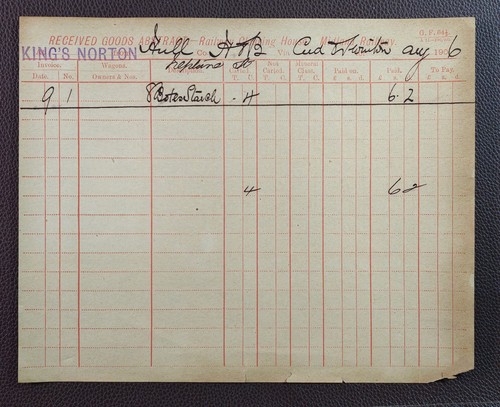 RECEIVED GOODS ABSTRACT.—Railway Clearing House.—Midland Railway.
G. F. 84
KING'S NORTON
Hull H & B Via Cud & Swinton Aug 1906
Neptune St
Invoice. Wagons. Description. Not Carted. Mineral Class. Paid on. Paid. To Pay.
Date. No. Owners & Nos. T. C. T. C. T. C. £ s. d. £ s. d. £ s. d.
9 1 8 Boxes Starch . 4 6 . 2
4 6 2